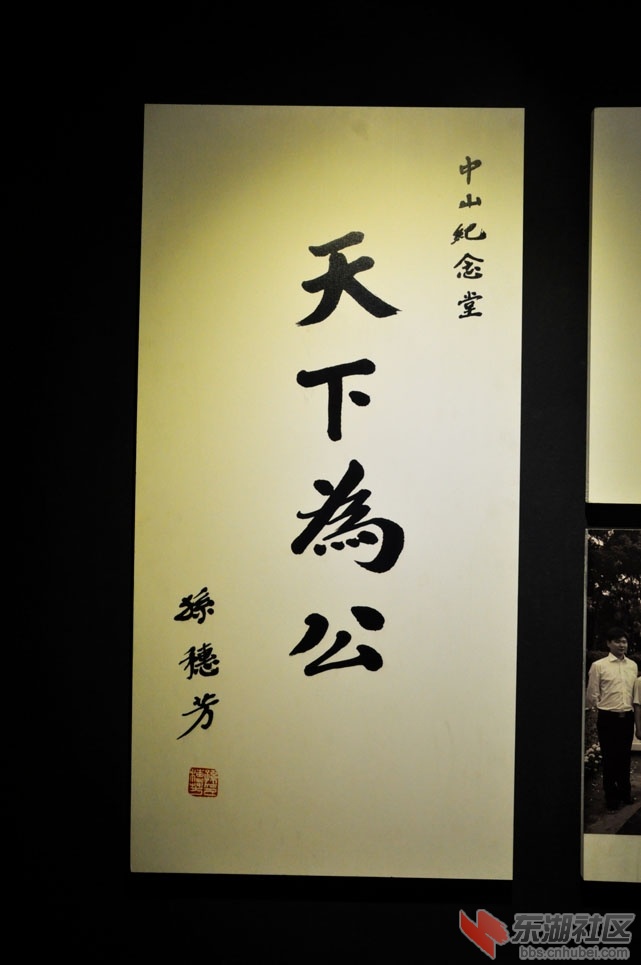 中山紀念堂
天下為公
孫穗芳
东湖社区
bbs.cnhubei.com